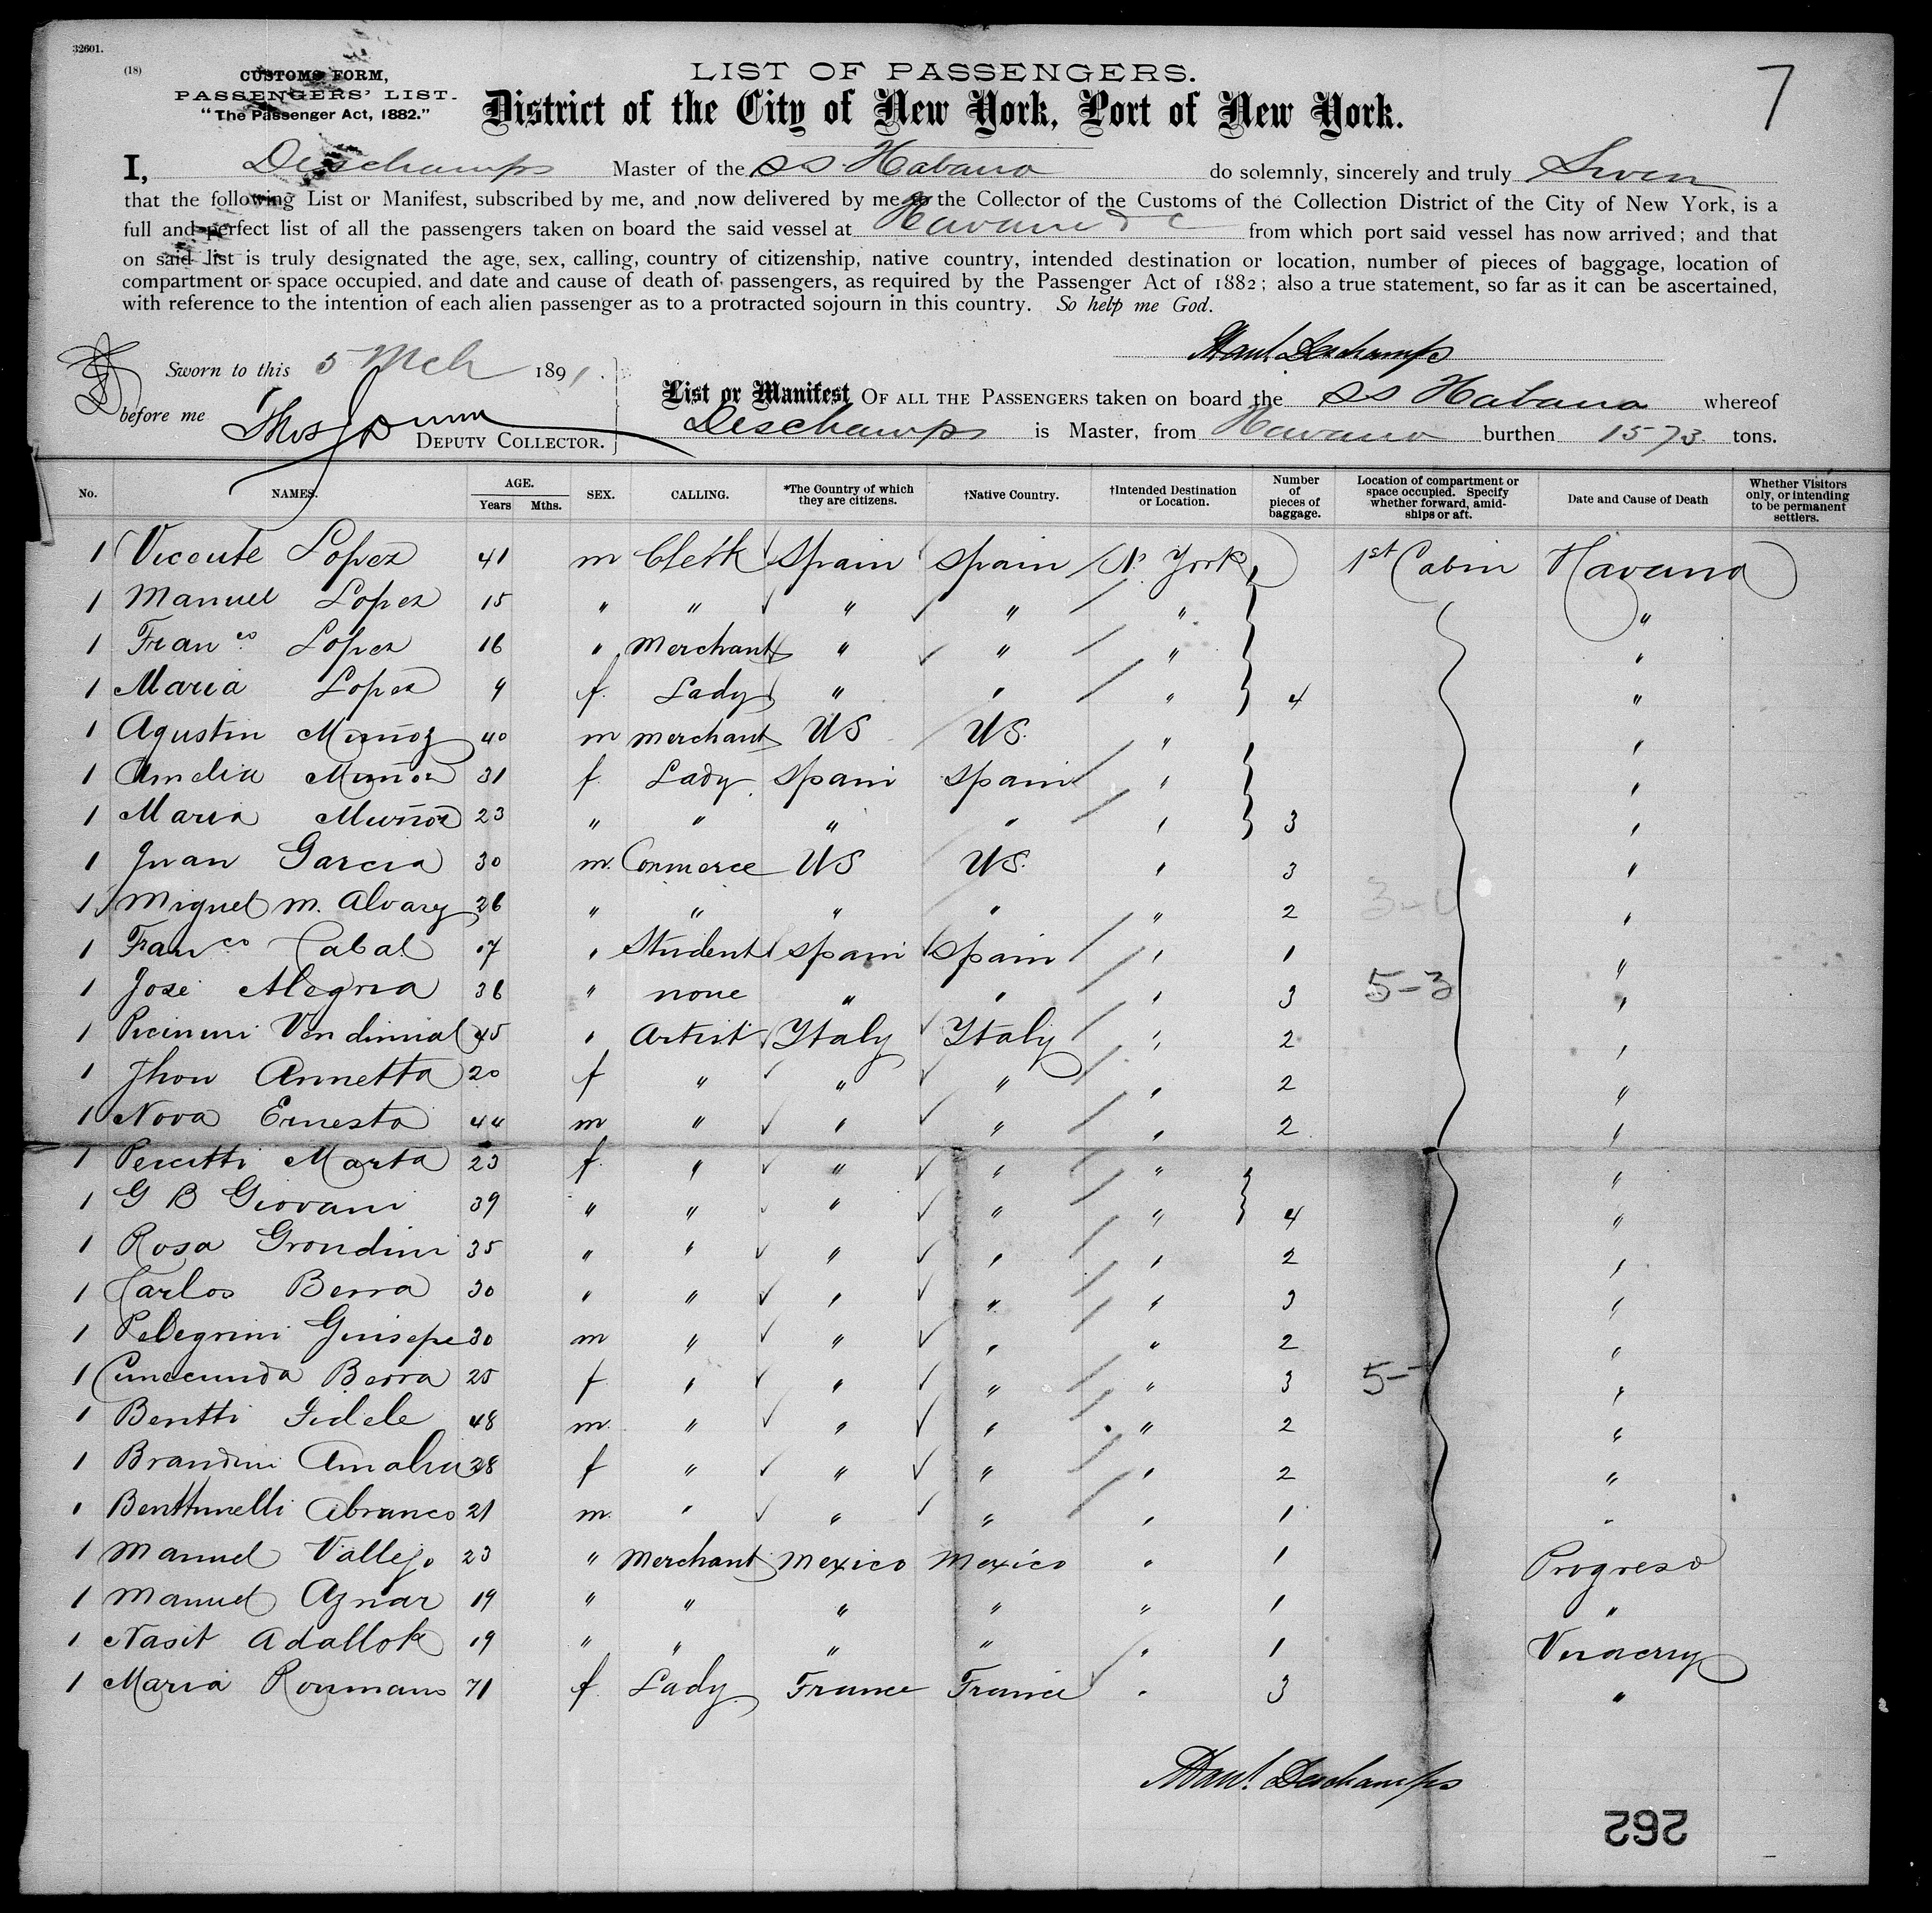 32601.
(18)
CUSTOMS FORM,
PASSENGERS' LIST.
"The Passenger Act, 1882."
LIST OF PASSENGERS.
District of the City of New York, Port of New York.
7
I, Deschamps Master of the SS Habana do solemnly, sincerely and truly Swear
that the following List or Manifest, subscribed by me, and now delivered by me to the Collector of the Customs of the Collection District of the City of New York, is a
full and perfect list of all the passengers taken on board the said vessel at Havana &c from which port said vessel has now arrived; and that
on said list is truly designated the age, sex, calling, country of citizenship, native country, intended destination or location, number of pieces of baggage, location of
compartment or space occupied, and date and cause of death of passengers, as required by the Passenger Act of 1882; also a true statement, so far as it can be ascertained,
with reference to the intention of each alien passenger as to a protracted sojourn in this country. So help me God.
Manl. Deschamps
Sworn to this 5 Mch 1891.
before me Thos
DEPUTY COLLECTOR.
List or Manifest OF ALL THE PASSENGERS taken on board the SS Habana whereof
Deschamps is Master, from Havana burthen 1573 tons.
No. NAMES. AGE. Years Mths. SEX. CALLING. *The Country of which they are citizens. †Native Country. †Intended Destination or Location. Number of pieces of baggage. Location of compartment or space occupied. Specify whether forward, amidships or aft. Date and Cause of Death Whether Visitors only, or intending to be permanent settlers.
1 Vicente Lopez 41 m Clerk Spain Spain N. York 1st Cabin Havana
1 Manuel Lopez 15 " " " " " "
1 Franco Lopez 16 " Merchant " " " "
1 Maria Lopez 9 f. Lady " " " 4 "
1 Agustin Muñoz 40 m merchant US US. " "
1 Amelia Muñoz 31 f. Lady Spain Spain " "
1 Maria Muñoz 23 " " " " " 3 "
1 Juan Garcia 30 m. Commerce US US. " 3 "
1 Miguel M. Alvarez 26 " " " " " 2 "
1 Franco Cabal 17 " Student Spain Spain " 1 "
1 Jose Alegria 36 " none " " " 3 5-3 "
1 Vendimial 45 " Artist Italy Italy " 2 "
1 Jhon Annetta 20 f " " " " 2 "
1 Nova Ernesto 44 m " " " " 2 "
1 Marta 23 f. " " " " "
1 G B Giovani 39 " " " " " 4 "
1 Rosa Grondini 35 " " " " " 2 "
1 Carlos Berra 30 " " " " " 3 "
1 Pelegrini Guisepe 30 m " " " " 2 "
1 Cunecunda Berra 25 f " " " " 3 5- "
1 Bentti Fidele 48 m. " " " " 2 "
1 Brandini Amalia 28 f " " " " 2 "
1 Abranco 21 m. " " " " 1 "
1 Manuel Vallejo 23 " Merchant Mexico Mexico " 1 Progreso
1 Manuel Aznar 19 " " " " " 1 "
1 Nasit Adallok 19 " " " " " 1 Veracruz
1 Maria Roumans 71 f. Lady France France " 3 "
Manl. Deschamps
262